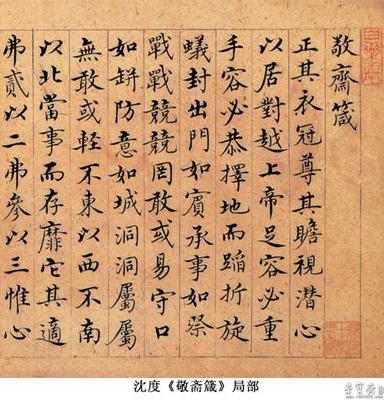 敬齋箴
正其衣冠尊其瞻視潛心
以居對越上帝足容必重
手容必恭擇地而蹈折旋
蟻封出門如賓承事如祭
戰戰兢兢罔敢或易守口
如缾防意如城洞洞屬屬
無敢或輕不東以西不南
以北當事而存靡它其適
弗貳以二弗參以三惟心
沈度《敬斋箴》局部